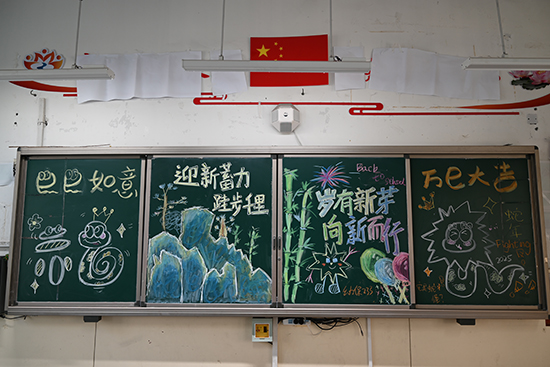 巳巳如意
迎新蓄力
跬步千里
Back
to
school
岁有新芽
向新而行
万巳大吉
蛇
年
2025